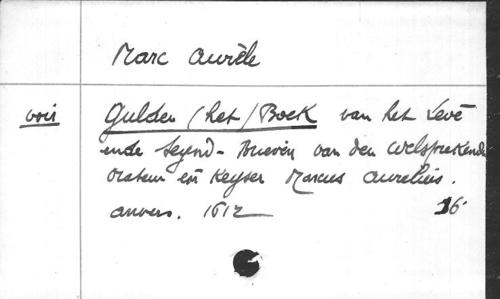 Marc Aurèle
voir Gulden (het) Boek van het Levē
ende Seyend-Brieven van den Welsprekende
Orateur eñ Keyser Marcus Aurelius.
Anvers. 1612 16°